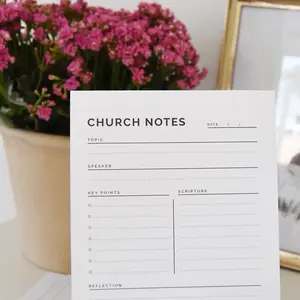 CHURCH NOTES
DATE / /
TOPIC
SPEAKER
KEY POINTS
SCRIPTURE
REFLECTION